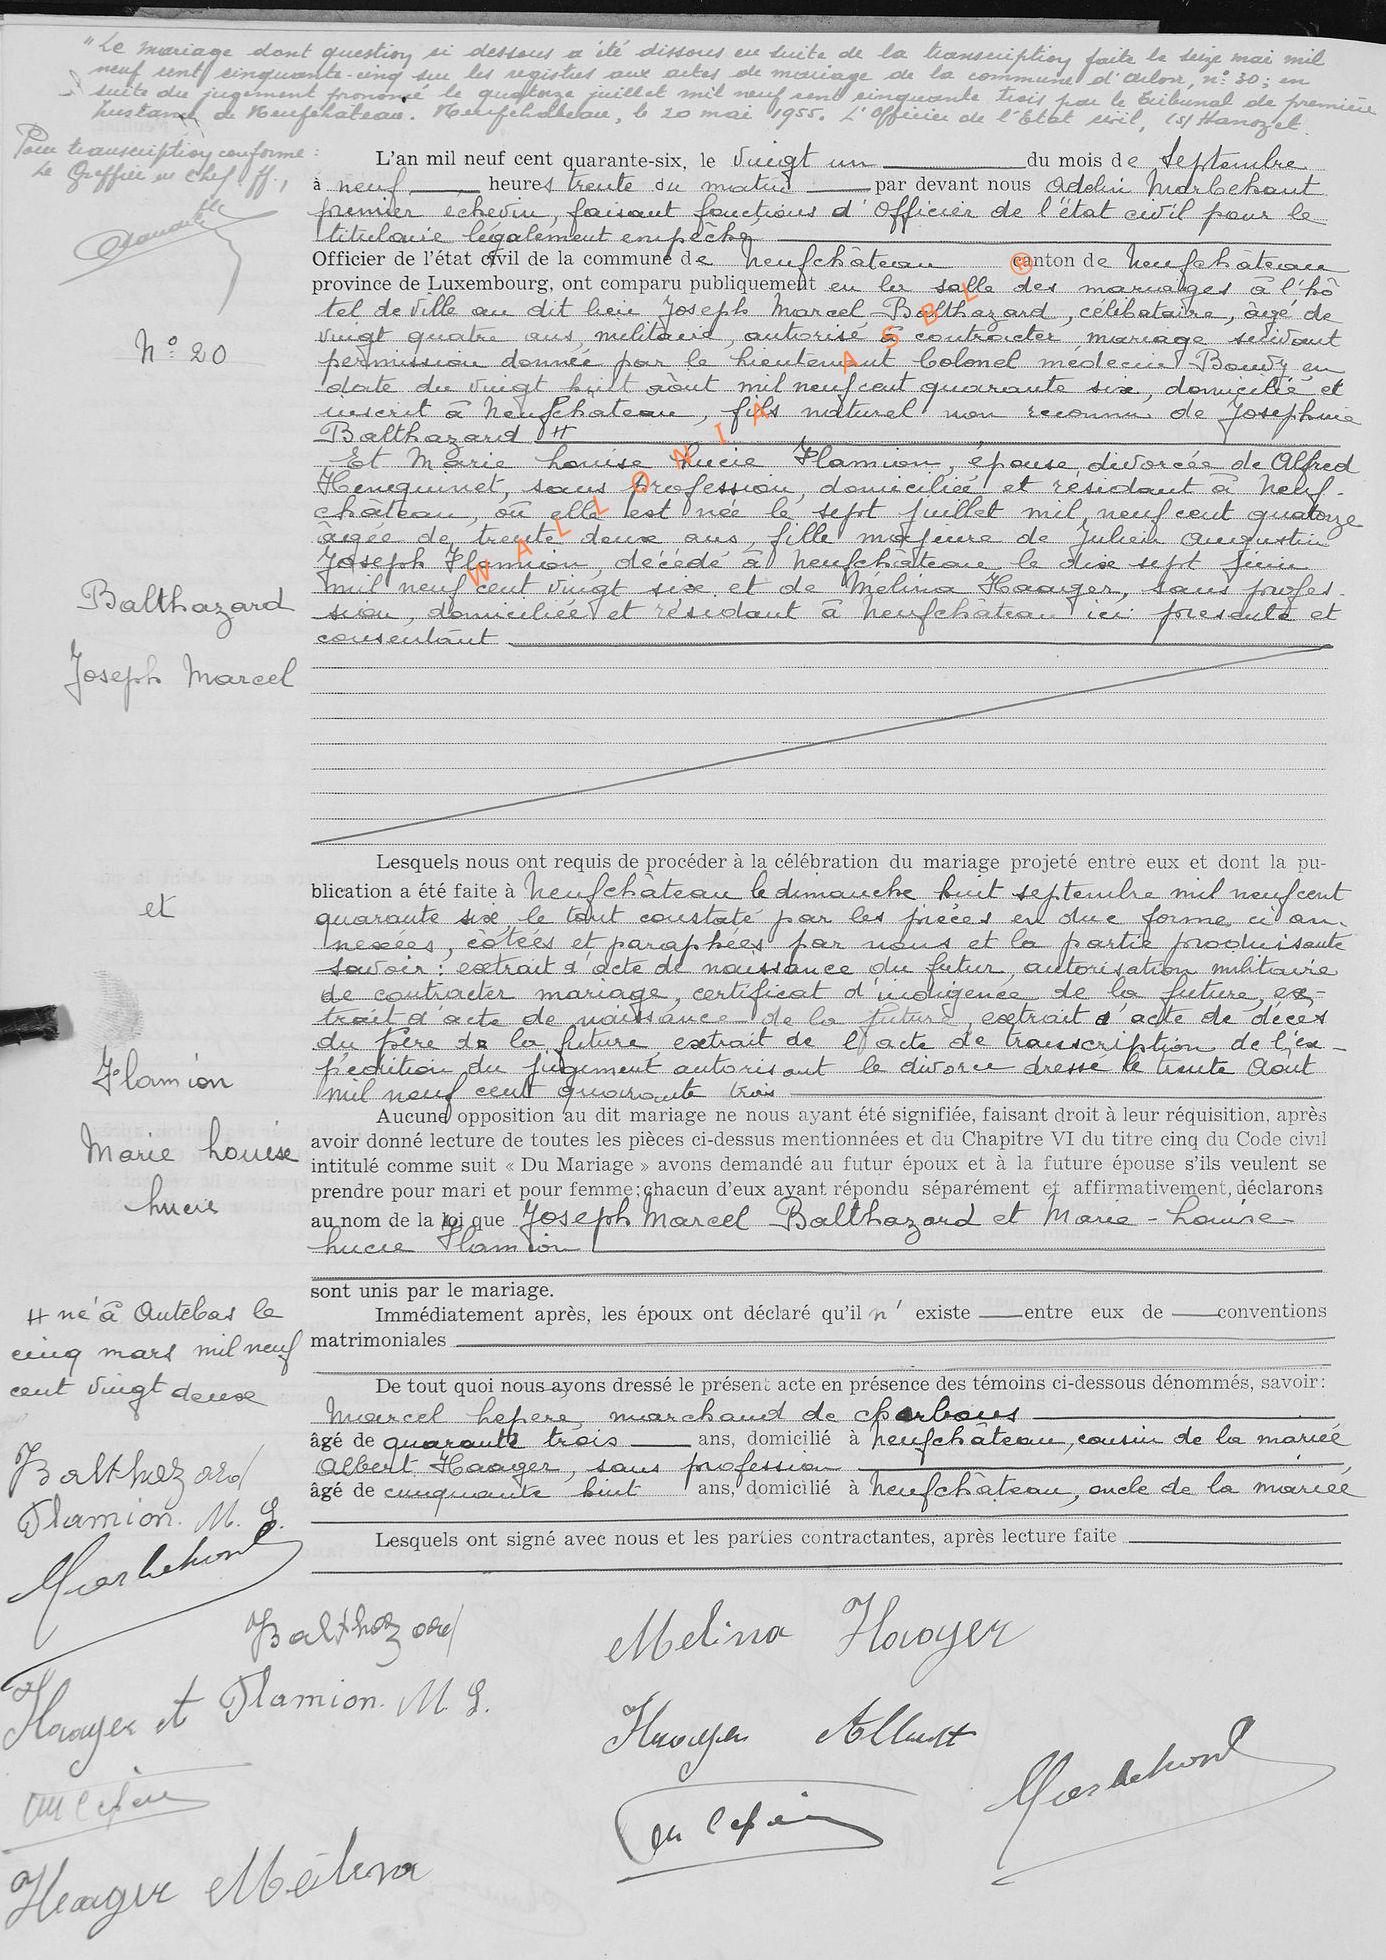 "Le mariage dont question ci dessous a été dissous en suite de la transcription faite le seize mai mil
neuf cent cinquante-cinq sur les registres aux actes de mariage de la commune d'Arlon, n° 30; en
suite du jugement prononcé le quatorze juillet mil neuf cent cinquante trois par le tribunal de première
Instance de Neufchâteau. Neufchâteau, le 20 mai 1955. L'Officier de l'Etat civil, (s) Hanozet.
Pour transcription conforme:
Le Greffier en Chef ff,
L'an mil neuf cent quarante-six, le vingt un du mois de Septembre
à neuf heures trente du matin par devant nous Adelin Marbehant
premier échevin, faisant fonctions d'Officier de l'état civil pour le
titulaire légalement empêché
Officier de l'état civil de la commune de Neufchâteau canton de Neufchâteau
province de Luxembourg, ont comparu publiquement en la salle des mariages à l'hô
tel de ville au dit lieu Joseph Marcel Balthazard, célibataire, âgé de
vingt quatre ans, militaire, autorisé à contracter mariage suivant
permission donnée par le Lieutenant Colonel medecin Bouvy en
date du vingt huit août mil neuf cent quarante six, domicilié et
inscrit à Neufchâteau, fils naturel non reconnu de Josephine
Balthazard #
Et Marie Louise Lucie Flamion, épouse divorcée de Alfred
Henquinet, sans profession, domiciliée et résidant à Neuf-
château, où elle est née le sept juillet mil neuf cent quatorze
âgée de trente deux ans, fille majeure de Julien Augustin
Joseph Flamion, décédé à Neufchâteau le dix sept juin
mil neuf cent vingt six et de Mélina Haager, sans profes-
sion, domiciliée et résidant à Neufchâteau ici présente et
consentant
WALLONIA ASBL ®
N° 20
Balthazard
Joseph Marcel
et
Flamion
Marie Louise
Lucie
Lesquels nous ont requis de procéder à la célébration du mariage projeté entre eux et dont la pu-
blication a été faite à Neufchâteau le dimanche huit septembre mil neuf cent
quarante six le tout constaté par les pièces en due forme ci an-
nexées, côtées et paraphées par nous et la partie produisante
savoir: extrait d'acte de naissance du futur, autorisation militaire
de contracter mariage, certificat d'indigence de la future, ex-
trait d'acte de naissance de la future, extrait d'acte de décès
du père de la future extrait de l'acte de transcription de l'ex-
pédition du jugement autorisant le divorce dressé le trente Août
mil neuf cent quarante trois
Aucune opposition au dit mariage ne nous ayant été signifiée, faisant droit à leur réquisition, après
avoir donné lecture de toutes les pièces ci-dessus mentionnées et du Chapitre VI du titre cinq du Code civil
intitulé comme suit « Du Mariage » avons demandé au futur époux et à la future épouse s'ils veulent se
prendre pour mari et pour femme; chacun d'eux ayant répondu séparément et affirmativement, déclarons
au nom de la loi que Joseph Marcel Balthazard et Marie-Louise
Lucie Flamion
sont unis par le mariage.
Immédiatement après, les époux ont déclaré qu'il n' existe entre eux de conventions
matrimoniales
De tout quoi nous ayons dressé le présent acte en présence des témoins ci-dessous dénommés, savoir:
Marcel Lepere, marchand de charbons
âgé de quarante trois ans, domicilié à Neufchâteau, cousin de la mariée
Albert Haager, sans profession
âgé de cinquante huit ans, domicilié à Neufchâteau, oncle de la mariée
Lesquels ont signé avec nous et les parties contractantes, après lecture faite
# né à Autelbas le
cinq mars mil neuf
cent vingt deux
Balthazard
Flamion. M. L.
Marbehant
Haager et
M Lepère
Haager Mélina
Balthazard
Flamion. M. L.
Melina Haager
Haager Albert
M Lepère
Marbehant